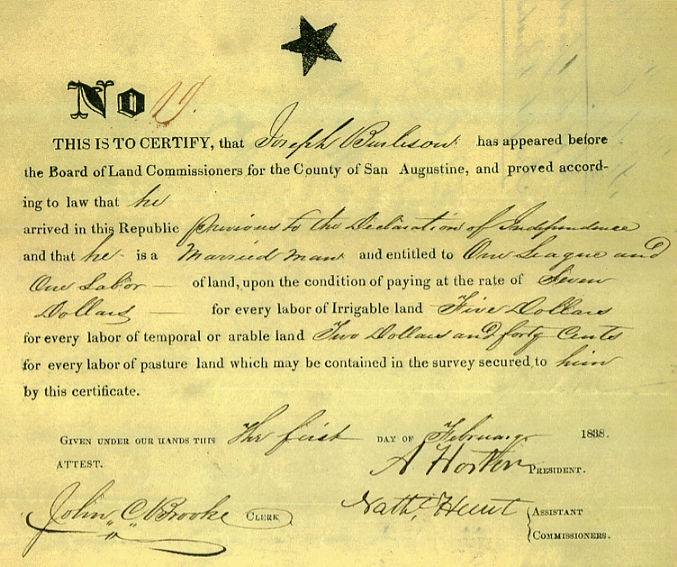 No 19.
THIS IS TO CERTIFY, that Joseph Burleson has appeared before
the Board of Land Commissioners for the County of San Augustine, and proved accord-
ing to law that he
arrived in this Republic previous to the Declaration of Independence
and that he is a Married man and entitled to One League and
One Labor — of land, upon the condition of paying at the rate of Seven
Dollars — for every labor of Irrigable land Five Dollars
for every labor of temporal or arable land Two Dollars and forty Cents
for every labor of pasture land which may be contained in the survey secured to him
by this certificate.
GIVEN UNDER OUR HANDS THIS The first DAY OF February 1838.
ATTEST. A Horton PRESIDENT.
John C. Brooke CLERK Nathl Hunt ASSISTANT
COMMISSIONERS.